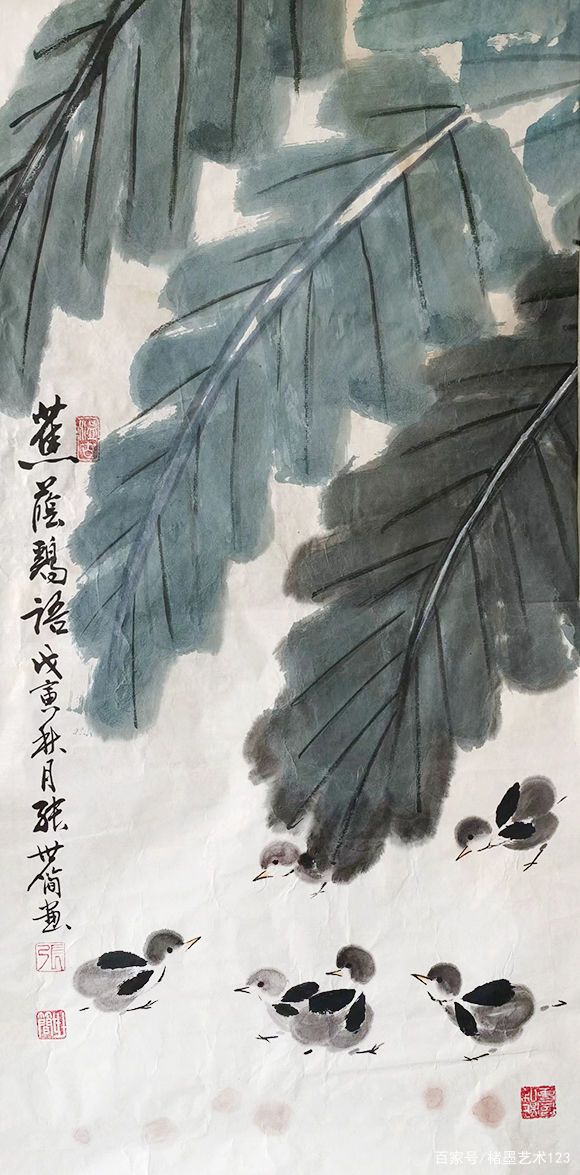 蕉蔭鷄語戊寅秋月張世简畫
百家号/楮墨艺术123